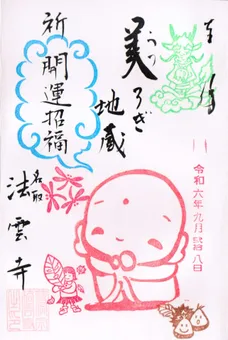 奉拝
令和六年九月弐拾八日
美ろぎ
うつ
地蔵
祈
開運招福
名取
法雲寺